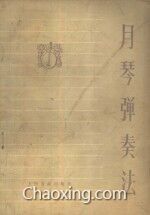 月琴彈奏法
Chaoxing.com